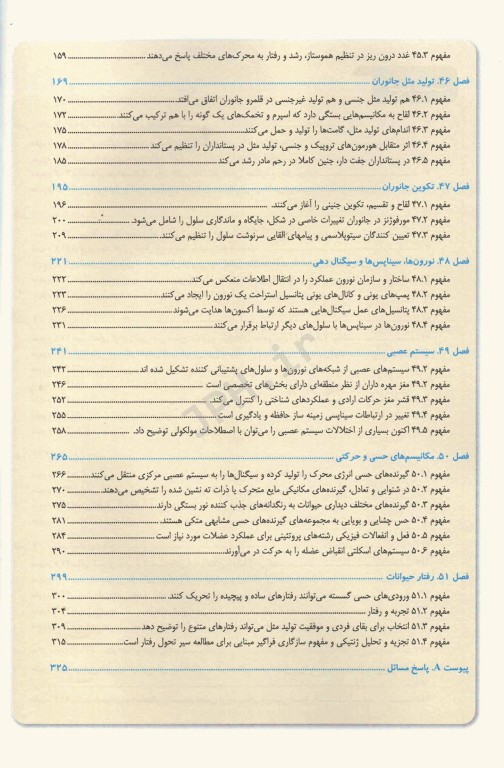 مفهوم ۴۵.۳ غدد درون ریز در تنظیم هموستاز، رشد و رفتار به محرک‌های مختلف پاسخ می‌دهند ۱۵۹
فصل ۴۶. تولید مثل جانوران ۱۶۹
مفهوم ۴۶.۱ هم تولید مثل جنسی و هم تولید غیرجنسی در قلمرو جانوران اتفاق می‌افتد ۱۷۰
مفهوم ۴۶.۲ لقاح به مکانیسم‌هایی بستگی دارد که اسپرم و تخمک‌های یک گونه را با هم ترکیب می‌کنند ۱۷۲
مفهوم ۴۶.۳ اندام‌های تولید مثل، گامت‌ها را تولید و حمل می‌کنند ۱۷۵
مفهوم ۴۶.۴ اثر متقابل هورمون‌های تروپیک و جنسی، تولید مثل در پستانداران را تنظیم می‌کند ۱۷۸
مفهوم ۴۶.۵ در پستانداران جفت دار، جنین کاملا در رحم مادر رشد می‌کند ۱۸۵
فصل ۴۷. تکوین جانوران ۱۹۵
مفهوم ۴۷.۱ لقاح و تقسیم، تکوین جنینی را آغاز می‌کنند. ۱۹۶
مفهوم ۴۷.۲ مورفوژنز در جانوران تغییرات خاصی در شکل، جایگاه و ماندگاری سلول را شامل می‌شود. ۲۰۰
مفهوم ۴۷.۳ تعیین کنندگان سیتوپلاسمی و پیامهای القایی سرنوشت سلول را تنظیم می‌کنند. ۲۰۹
فصل ۴۸. نورون‌ها، سیناپس‌ها و سیگنال دهی ۲۲۱
مفهوم ۴۸.۱ ساختار و سازمان نورون عملکرد را در انتقال اطلاعات منعکس می‌کند ۲۲۲
مفهوم ۴۸.۲ پمپ‌های یونی و کانال‌های یونی پتانسیل استراحت یک نورون را ایجاد می‌کنند ۲۲۳
مفهوم ۴۸.۳ پتانسیل‌های عمل سیگنال‌هایی هستند که توسط آکسون‌ها هدایت می‌شوند ۲۲۶
مفهوم ۴۸.۴ نورون‌ها در سیناپس‌ها با سلول‌های دیگر ارتباط برقرار می‌کنند ۲۳۱
فصل ۴۹. سیستم عصبی ۲۴۱
مفهوم ۴۹.۲ سیستم‌های عصبی از شبکه‌های نورون‌ها و سلول‌های پشتیبانی کننده تشکیل شده اند ۲۴۲
مفهوم ۴۹.۲ مغز مهره داران از نظر منطقه‌ای دارای بخش‌های تخصصی است ۲۴۶
مفهوم ۴۹.۳ قشر مغز حرکات ارادی و عملکردهای شناختی را کنترل می‌کند ۲۵۲
مفهوم ۴۹.۴ تغییر در ارتباطات سیناپسی زمینه ساز حافظه و یادگیری است ۲۵۵
مفهوم ۴۹.۵ اکنون بسیاری از اختلالات سیستم عصبی را می‌توان با اصطلاحات مولکولی توضیح داد. ۲۵۸
فصل ۵۰. مکانیسم‌های حسی و حرکتی ۲۶۵
مفهوم ۵۰.۱ گیرنده‌های حسی انرژی محرک را تولید کرده و سیگنال‌ها را به سیستم عصبی مرکزی منتقل می‌کنند ۲۶۶
مفهوم ۵۰.۲ در شنوایی و تعادل، گیرنده‌های مکانیکی مایع متحرک یا ذرات ته نشین شده را تشخیص می‌دهند ۲۷۰
مفهوم ۵۰.۳ گیرنده‌های مختلف دیداری حیوانات به رنگدانه‌های جذب کننده نور بستگی دارند ۲۷۵
مفهوم ۵۰.۴ حس چشایی و بویایی به مجموعه‌های گیرنده‌های حسی مشابهی متکی هستند. ۲۸۱
مفهوم ۵۰.۵ فعل و انفعالات فیزیکی رشته‌های پروتئینی برای عملکرد عضلات مورد نیاز است ۲۸۴
مفهوم ۵۰.۶ سیستم‌های اسکلتی انقباض عضله را به حرکت در می‌آورند ۲۹۰
فصل ۵۱. رفتار حیوانات ۲۹۹
مفهوم ۵۱.۱ ورودی‌های حسی گسسته می‌توانند رفتارهای ساده و پیچیده را تحریک کنند. ۳۰۰
مفهوم ۵۱.۲ تجربه و رفتار ۳۰۴
مفهوم ۵۱.۳ انتخاب برای بقای فردی و موفقیت تولید مثل می‌تواند رفتارهای متنوع را توضیح دهد ۳۰۹
مفهوم ۵۱.۴ تجزیه و تحلیل ژنتیکی و مفهوم سازگاری فراگیر مبنایی برای مطالعه سیر تحول رفتار است ۳۱۵
پیوست A. پاسخ مسائل ۳۲۵